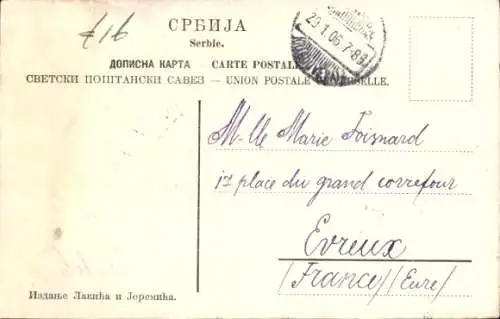 £16
СРБИЈА
Serbie.
ДОПИСНА КАРТА — CARTE POSTALE
СВЕТСКИ ПОШТАНСКИ САВЕЗ — UNION POSTALE UNIVERSELLE.
29.1.06. 7-8
M-lle Marie Foisnard
place du grand correfour
Evreux
(France) (Eure)
Издање Лакића и Јеремића.